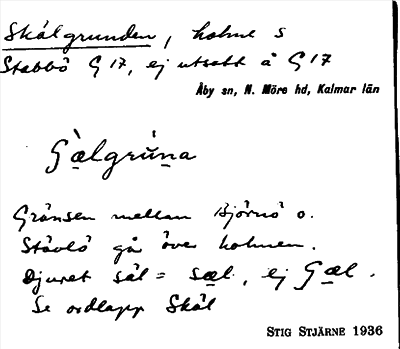 Skälgrunden, holme S
Stabbö G 17, ej utsatt å G 17
Åby sn, N. Möre hd, Kalmar län
Gränsen mellan Björnö o.
går över holmen.
Djuret säl = sæl, ej
Se ordlapp Skäl
STIG STJÄRNE 1936